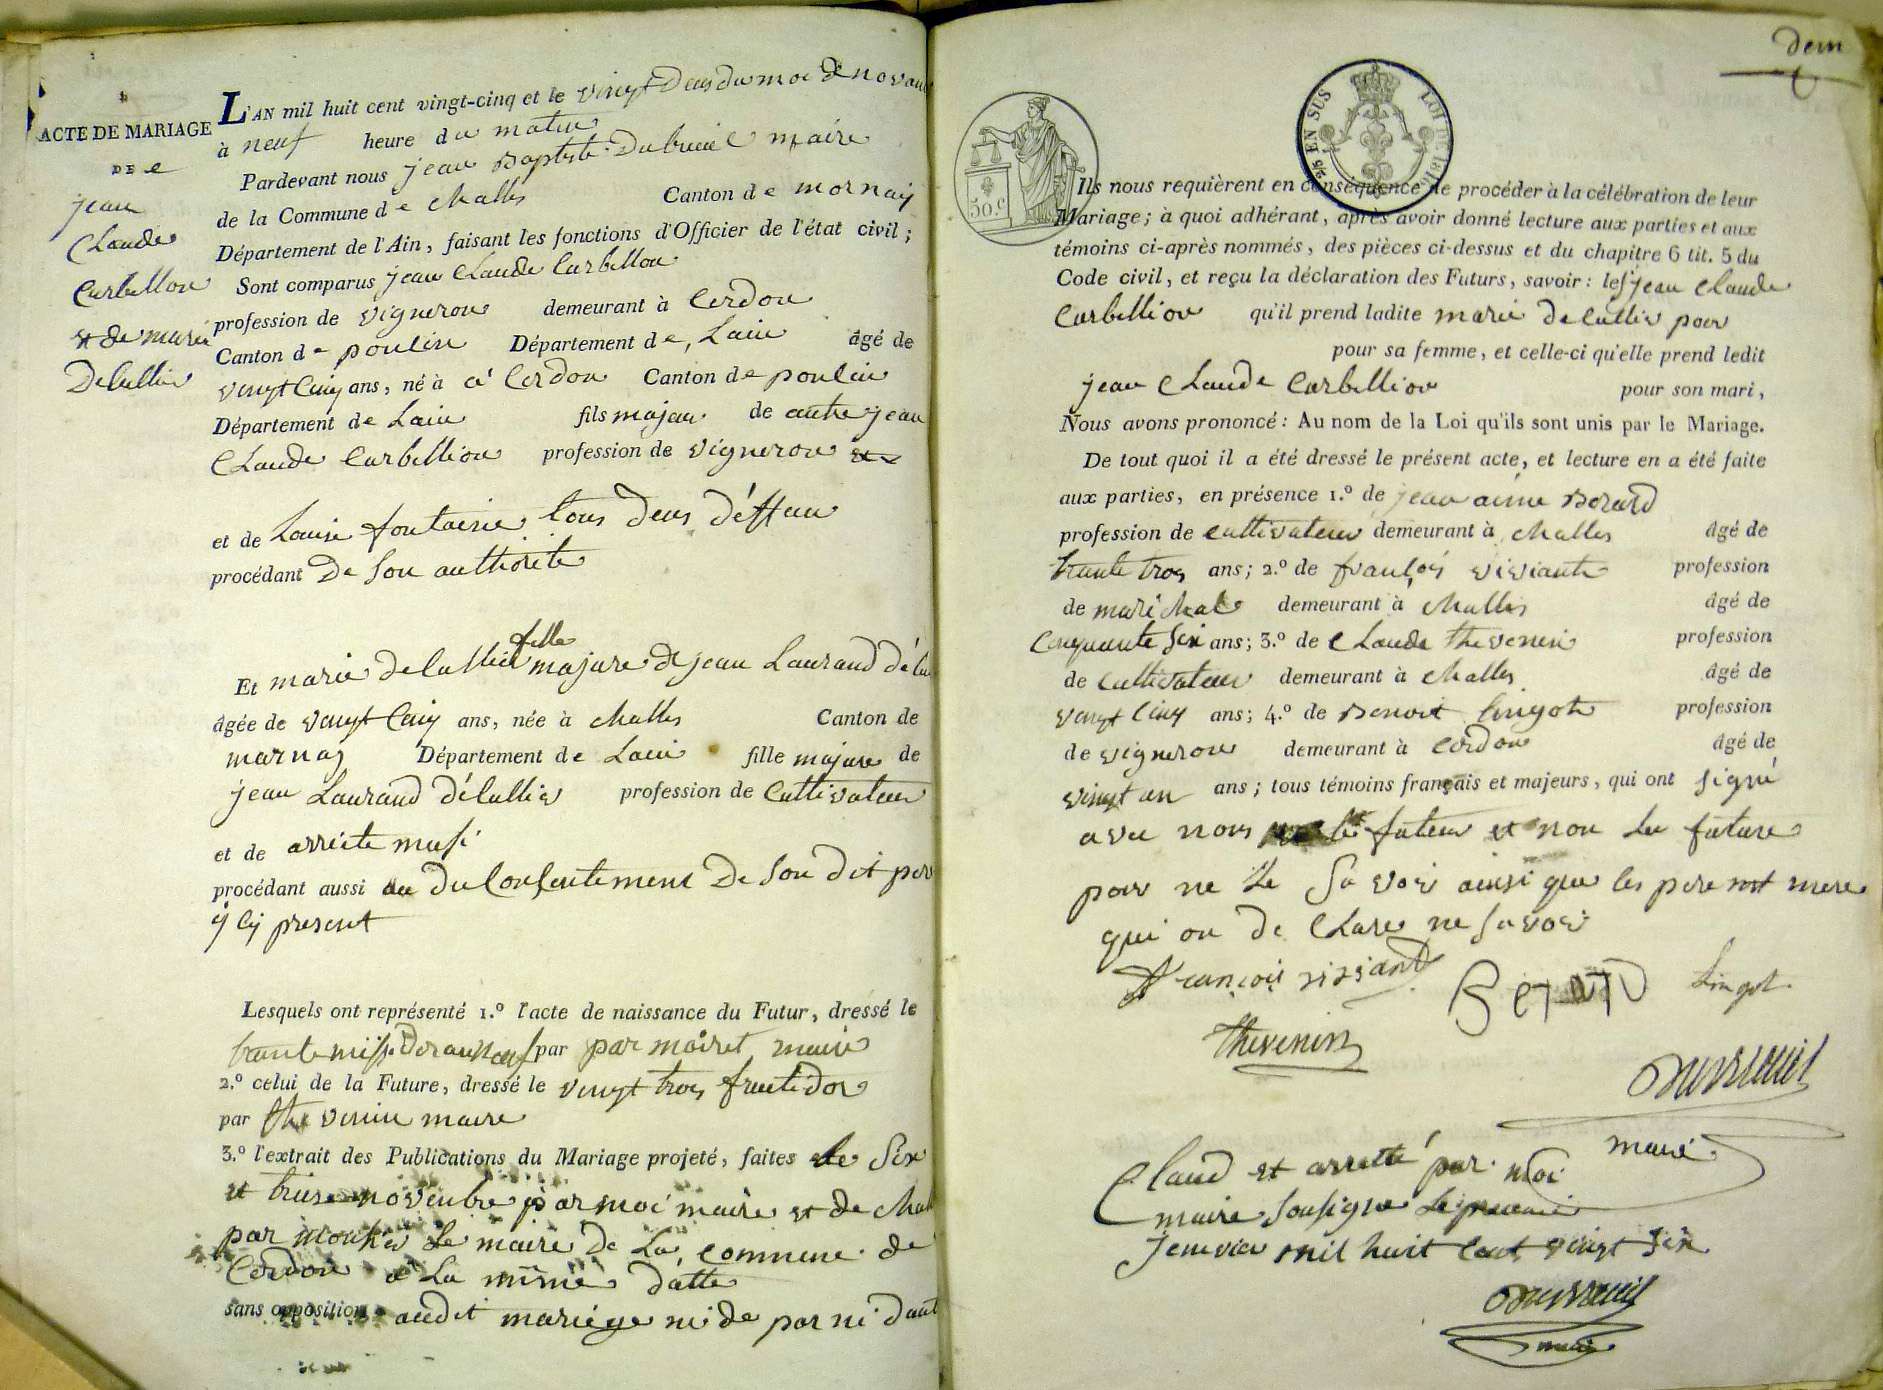 ACTE DE MARIAGE
DE e
jean
Claude
Curbillon
et de marie
Delullier
L'AN mil huit cent vingt-cinq et le vingt Deus du moi de novam
à neuf heure du matin
Pardevant nous jean Baptiste Dubreuil maire
de la Commune de challes Canton de mornay
Département de l'Ain, faisant les fonctions d'Officier de l'état civil;
Sont comparus jean Claude Curbillon
profession de vigneron demeurant à Cerdon
Canton de poncin Département de Lain âgé de
vingt Cinq ans, né à à Cerdon Canton de poncin
Département de Lain fils majeur de autre jean
Claude Curbillion profession de vigneron
et de Louise fontaine tous Deus déffun
procédant De son authorité
fille
Et marie delullier majure de jean Laurand délu
âgée de vingt Cinq ans, née à challes Canton de
marnay Département de Lain fille majure de
jean Laurand délullier profession de Cultivateur
et de arriete musi
procédant aussi du Consentement De son dit per
y cy present
Lesquels ont représenté 1.º l'acte de naissance du Futur, dressé le
trante par par moiret maire
2.º celui de la Future, dressé le vingt trois fructidor
par thevenin maire
3.º l'extrait des Publications du Mariage projeté, faites le Six
et treise novenbre par moi maire et de chal
par Le maire De La commune de
Cerdon à La mime datte
sans opposition audit mariege ni de par ni daut
dem
50.c
25 EN SUS
LOI DE 1816
Ils nous requièrent en conséquence de procéder à la célébration de leur
Mariage; à quoi adhérant, après avoir donné lecture aux parties et aux
témoins ci-après nommés, des pièces ci-dessus et du chapitre 6 tit. 5 du
Code civil, et reçu la déclaration des Futurs, savoir: les jean Claude
Curbillion qu'il prend ladite marie delullier pour
pour sa femme, et celle-ci qu'elle prend ledit
jean Claude Curbillion pour son mari,
Nous avons prononcé: Au nom de la Loi qu'ils sont unis par le Mariage.
De tout quoi il a été dressé le présent acte, et lecture en a été faite
aux parties, en présence 1.º de jean aimé Berard
profession de cultivateur demeurant à challes âgé de
trante trois ans; 2.º de françois viviante profession
de marichal demeurant à challes âgé de
Cinquante six ans; 3.º de Claude thevenin profession
de cultivateur demeurant à challes âgé de
vingt Cinq ans; 4.º de Benoit lingot profession
de vigneron demeurant à Cerdon âgé de
vingt un ans; tous témoins français et majeurs, qui ont signé
avec nous le futeur et non la future
pour ne le savoir ainsi que les pere et mere
qui on de Clare ne savoir
François viviand BERARD Lingot
thevenin
Dubreuil
maire
Claud et arretté par moi
maire sousigne le premier
jenvier mil huit cent vingt six
Dubreuil
maire